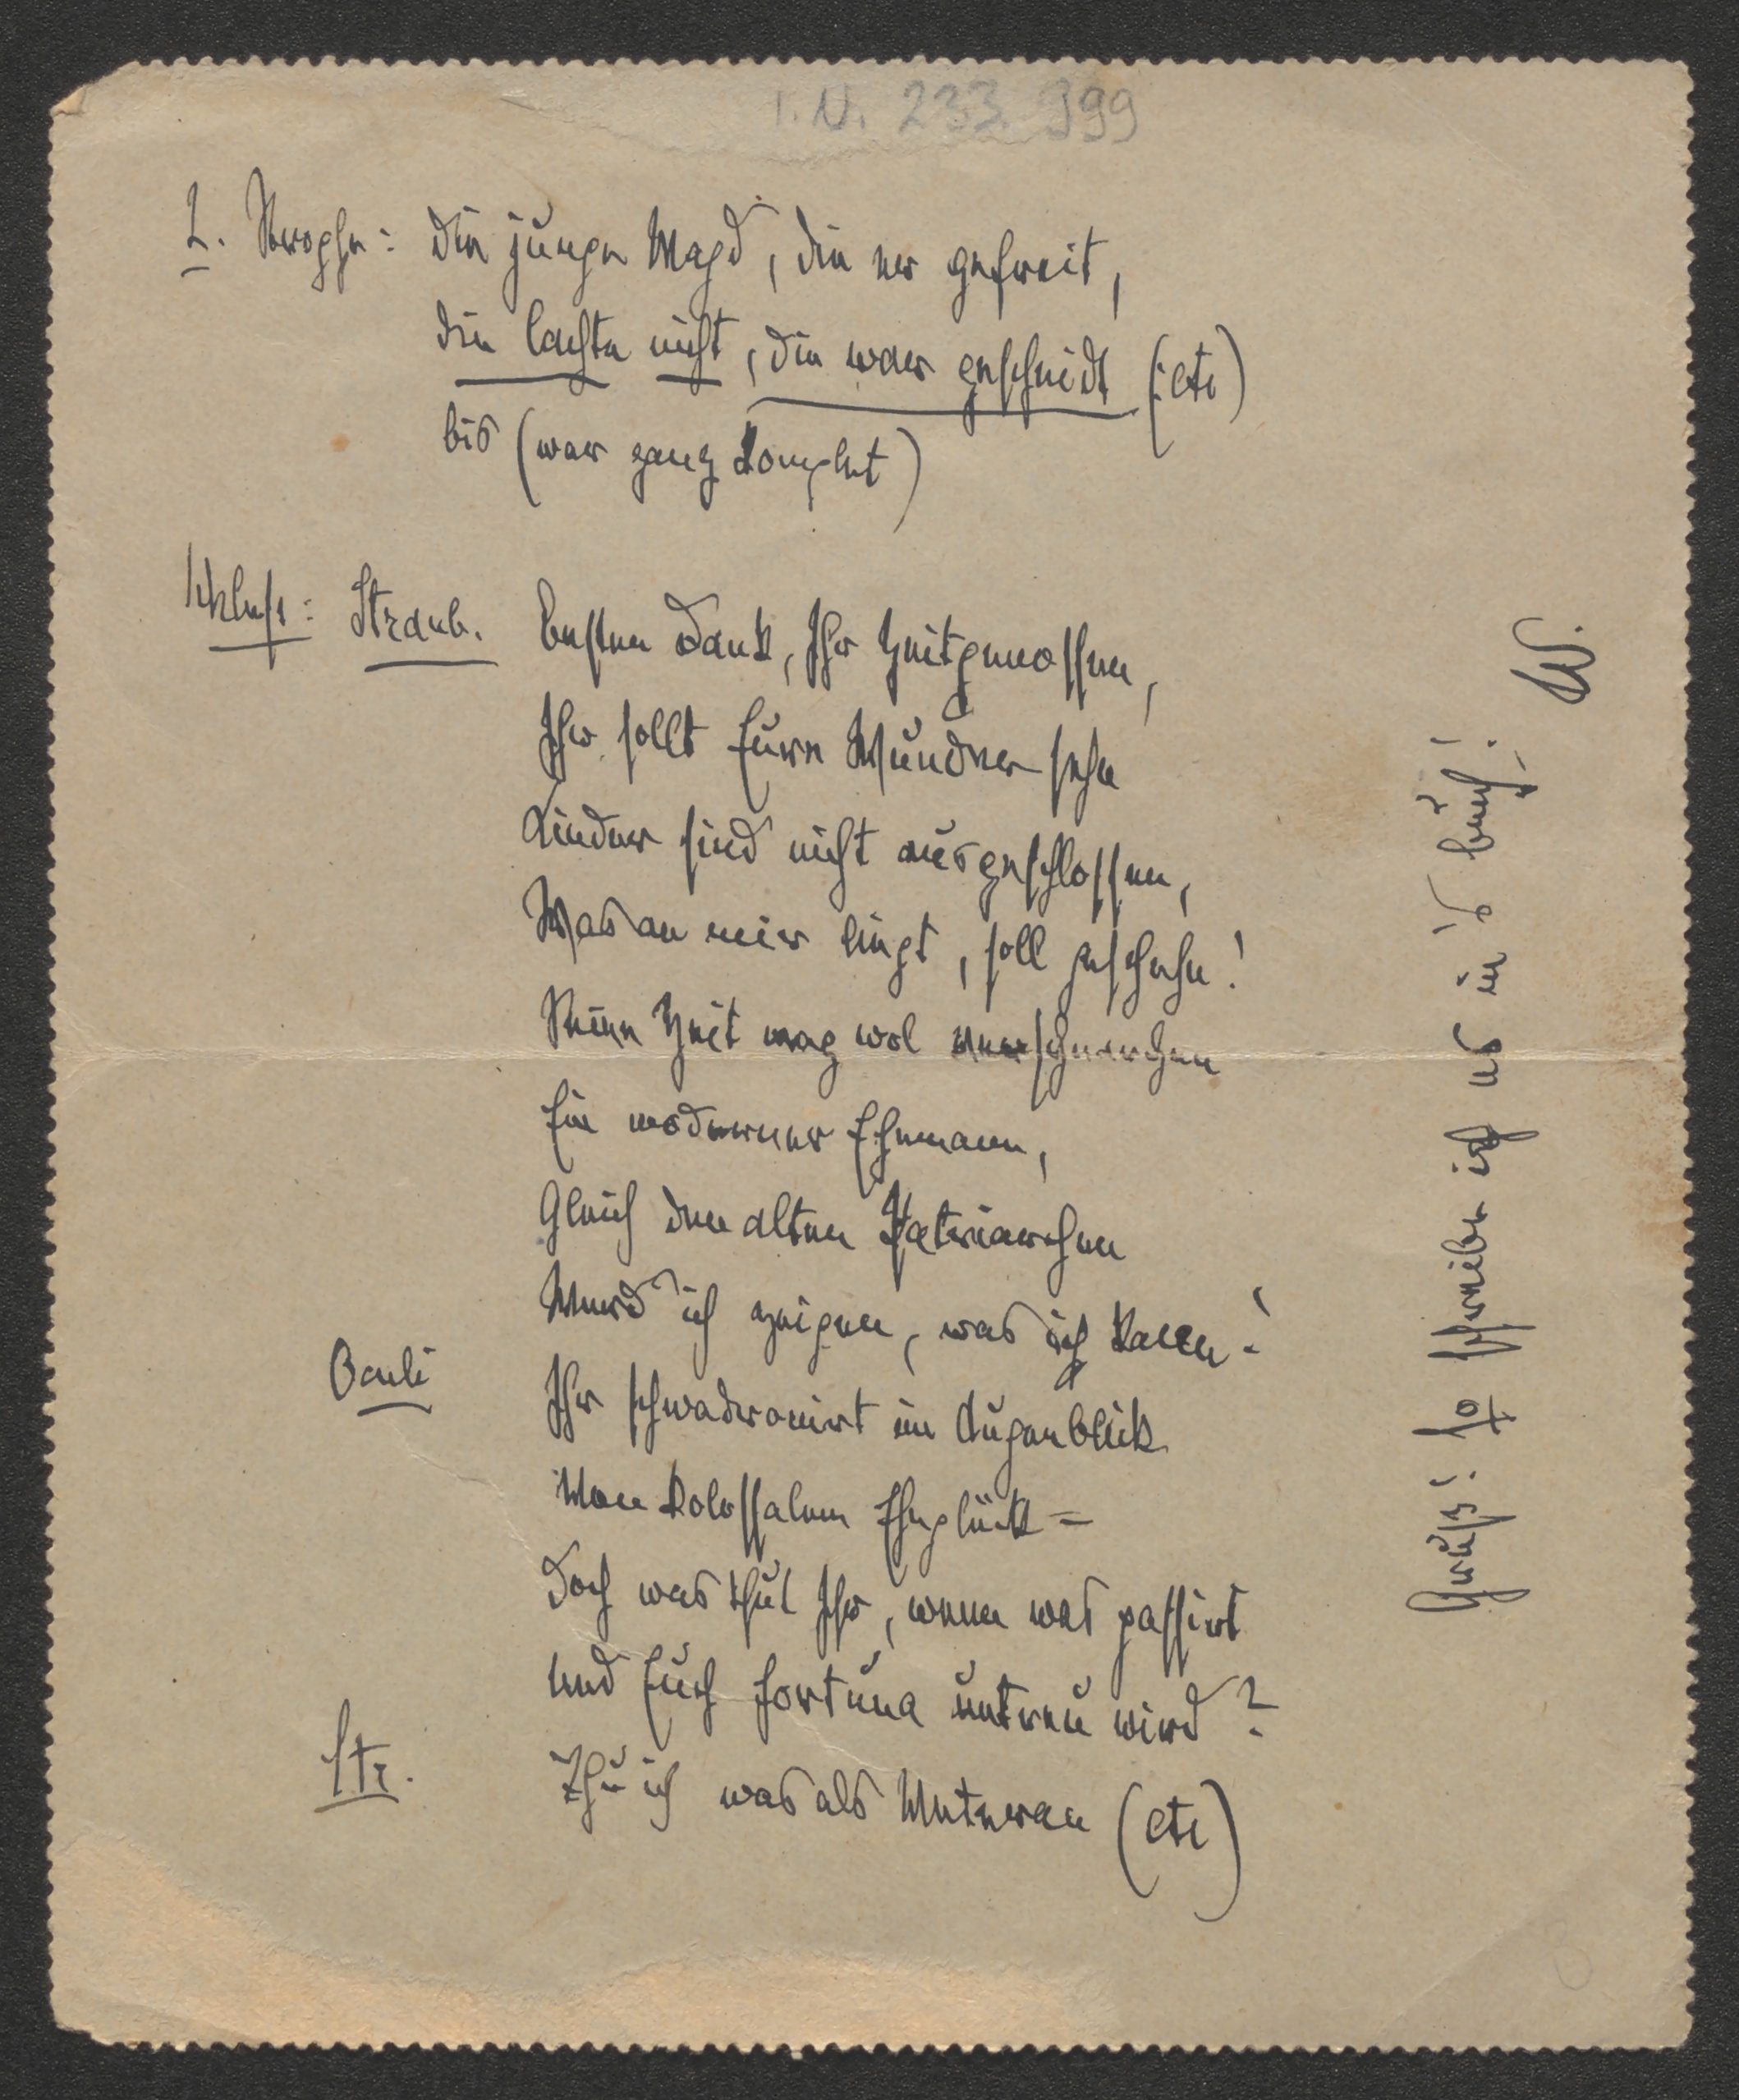 I.N. 233.399
2. Strophe: die junge Magd, die er gefreit,
die lachte nicht, die war gescheidt (:etc)
bis (war ganz komplet)
Schluss: Straub. Besten Dank, Ihr Zeitgenossen,
Ihr sollt Eure Wunder sehn
Kinder sind nicht ausgeschlossen,
Was an mir liegt, soll geschehn!
Seine Zeit mag wol verschnarchen
Ein moderner Ehemann,
Gleich den alten Patriarchen
Werd ich zeigen, was ich kann!
Pauli Ihr schwadronirt im Augenblick
Von kolossalem Eheglück =
Doch was thut Ihr, wenn was passirt
Und Euch Fortuna untreu wird?
Str. Thu ich was als Veteran (etc)
Gruß! So schreibe ich es in's buch!
W.